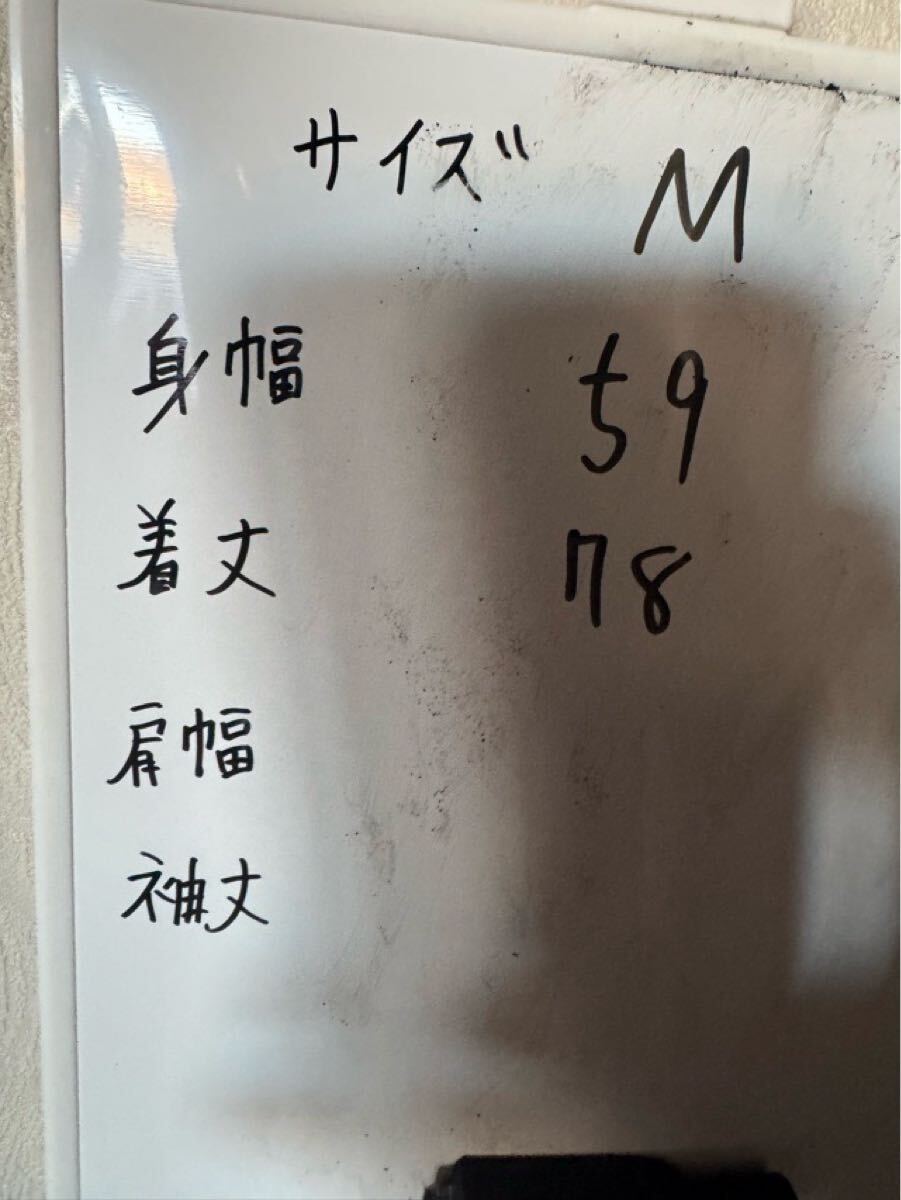 サイズ M
身幅 59
着丈 78
肩幅
袖丈